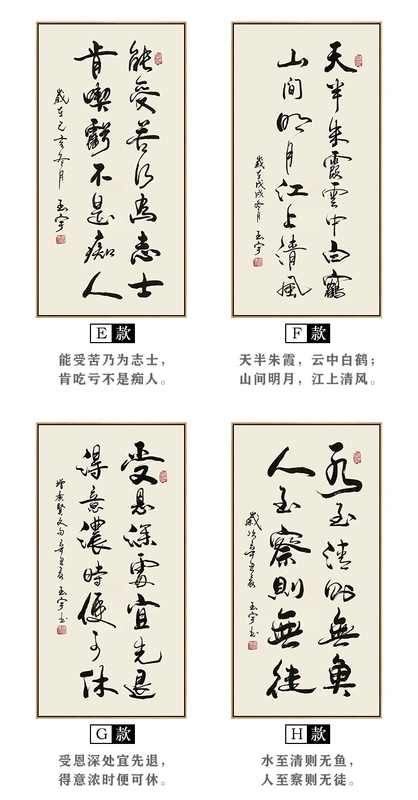 能受苦乃為志士
肯喫虧不是痴人
歲在己亥冬月 玉宇
E款
能受苦乃为志士，
肯吃亏不是痴人。
天半朱霞雲中白鶴
山間明月江上清風
歲在戊戌冬月 玉宇
F款
天半朱霞，云中白鹤；
山间明月，江上清风。
受恩深處宜先退
得意濃時便可休
增廣賢文句 辛丑 玉宇书
G款
受恩深处宜先退，
得意浓时便可休。
水至清則無魚
人至察則無徒
歲次辛丑 玉宇书
H款
水至清则无鱼，
人至察则无徒。